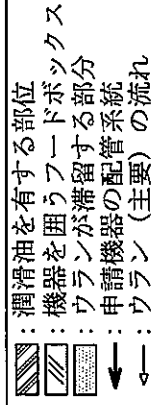 ：潤滑油を有する部位
：機器を囲うフードボックス
：ウランが滞留する部分
：申請機器の配管系統
：ウラン（主要）の流れ